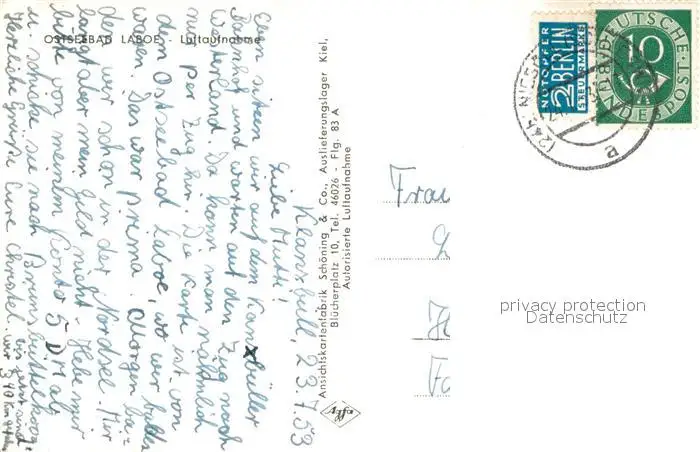 OSTSEEBAD LABOE - Luftaufnahme
Klanxbüll, 23.7.53
Liebe Mutti!
Eben sitzen wir auf dem Klanxbüller
Bahnhof und warten auf den Zug nach
Westerland. Da kann man nämlich
nur per Zug hin. Die Karte ist von
dem Ostseebad Laboe, wo wir
waren. Das war prima. Morgen
wir schon in der Nordsee. Mir
langt aber mein Geld nicht. Hebe mir
bitte von meinem Konto 5 DM ab
u. schicke sie nach Brunsbüttelkoog
Herzliche Grüße Eure Christel.
wir 540 km
Ansichtskartenfabrik Schöning & Co., Auslieferungslager Kiel,
Blücherplatz 10, Tel. 46026 - Flg. 83 A
Autorisierte Luftaufnahme
NOTOPFER
2 BERLIN
STEUERMARKE
DEUTSCHE
BUNDESPOST
10
(24b)
Frau
privacy protection
Datenschutz